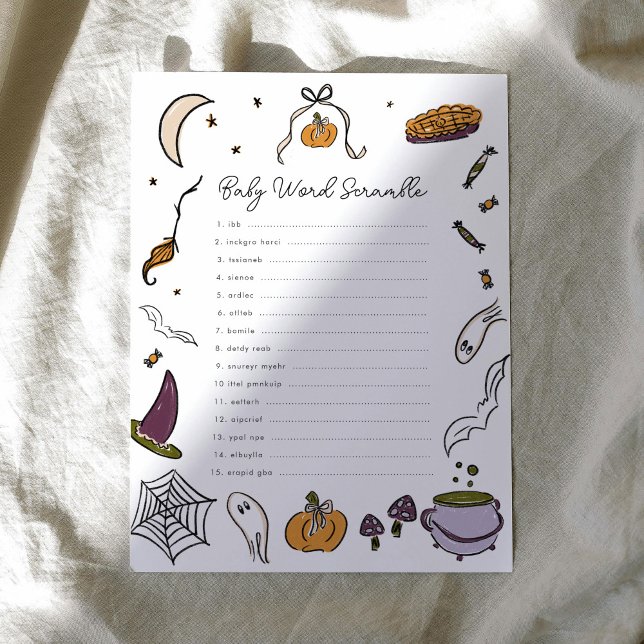 Baby Word Scramble
1. ibb
2. inckgra harci
3. tssianeb
4. sienoe
5. ardlec
6. otlteb
7. bomile
8. detdy reab
9. snureyr myehr
10 ittel pmnkuip
11. eetterh
12. aipcrief
13. ypal npe
14. elbuylla
15. erapid gba